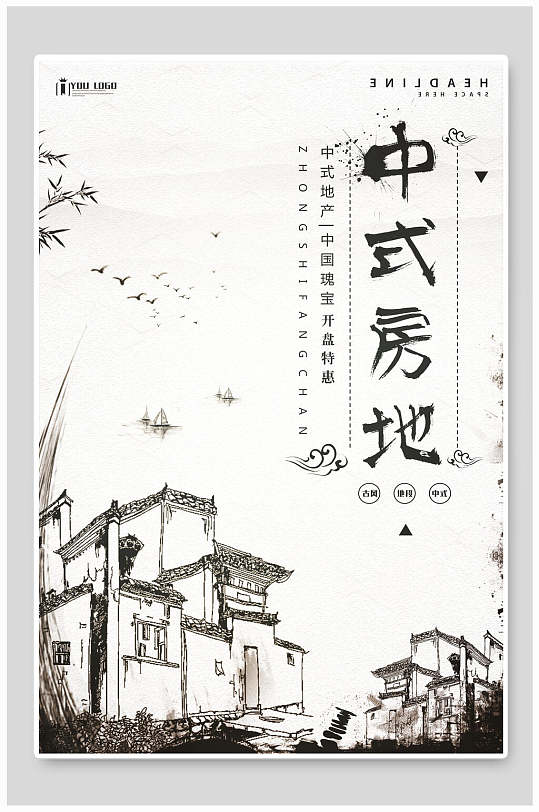 YOU LOGO
HEADLINE
SPACE HERE
中式房地
中式地产|中国瑰宝 开盘特惠
ZHONGSHIFANGCHAN
古风
地段
中式